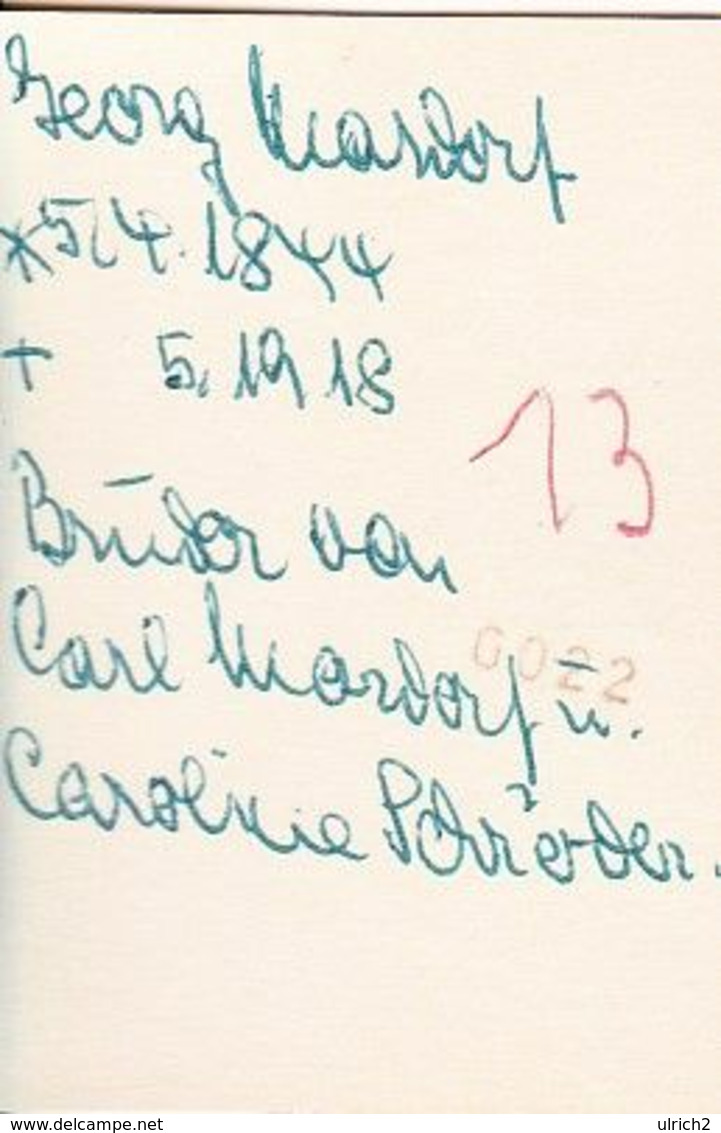 Georg Mardorf
* 5.4.1844
+ 5.1918
13
Bruder von
Carl Mardorf u.
0022
Caroline Schröder.
www.delcampe.net
ulrich2